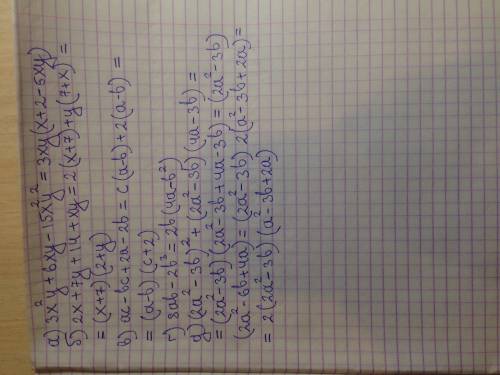 а) 3x²y + 6xy - 15xy² = 3xy(x+2-5xy)
б) 2x + 7y + 14 + xy = 2(x+7) + y(7+x) =
= (x+7)(2+y)
в) ac - bc + 2a - 2b = c(a-b) + 2(a-b) =
= (a-b)(c+2)
г) 8ab - 2b³ = 2b(4a - b²)
д) (2a² - 3b)² + (2a² - 3b)(4a - 3b) =
= (2a² - 3b)(2a² - 3b + 4a - 3b) = (2a² - 3b)
(2a² - 6b + 4a) = (2a² - 3b) 2(a² - 3b + 2a) =
= 2(2a² - 3b)(a² - 3b + 2a)